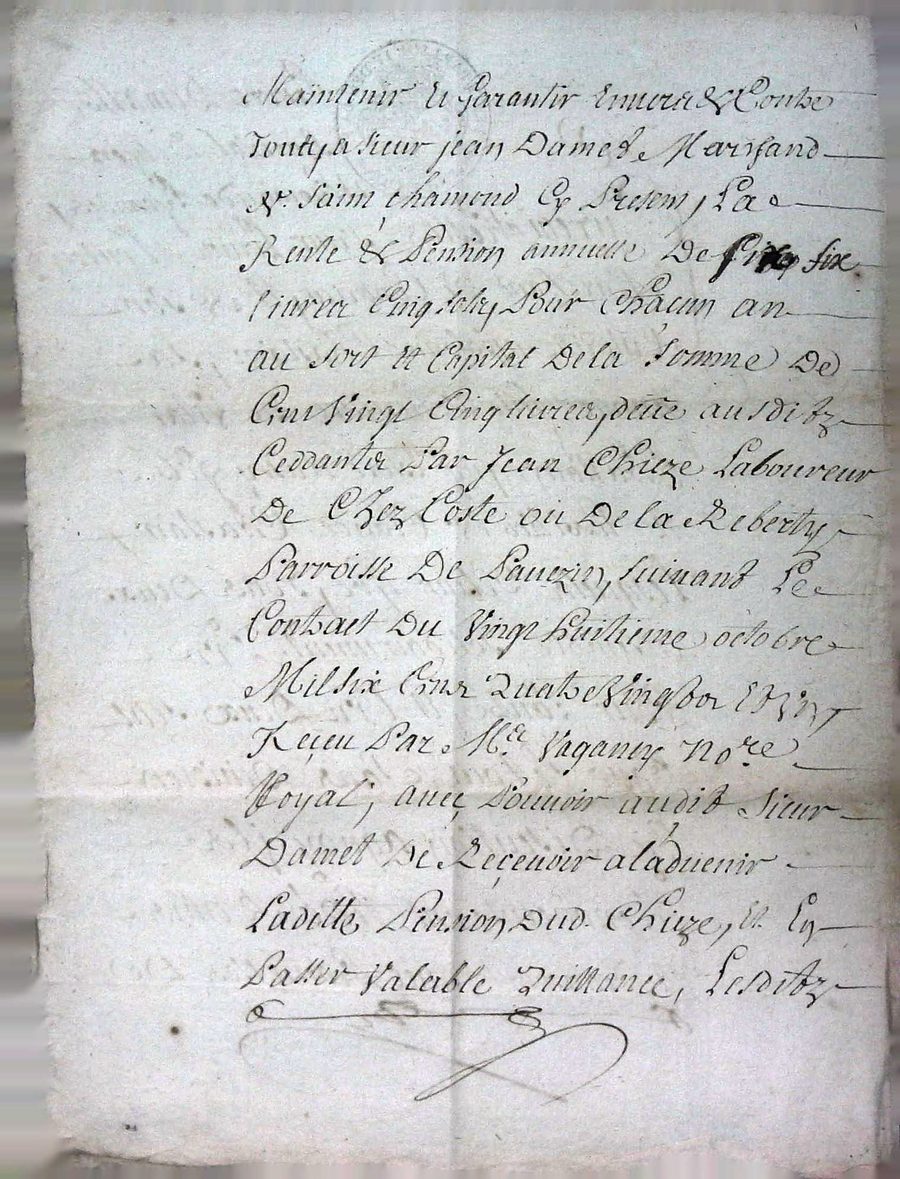 Maintenir Et Garantir Envers & Contre
Touts, a Sieur jean Damet Marchand
de Saint chamond Cy Present, La
Rente & Pension annuelle De six
livres Cinq sols, Pour Chacun an
au sort et Capital De la Somme De
Cent Vingt Cinq livres, deüe ausditz
Ceddants Par Jean Chieze Laboureur
De Chez Coste ou De la Reberty
Parroisse De Pavezin, suivant Le
Contract Du Vingt huitieme octobre
Mil Six Cens Quatre Vingtz
Reçeu Par Me. Vaganey nore
Royal, avec Pouvoir audit Sieur
Damet De Reçevoir a l'advenir
Laditte Pension Dud. Chieze, et En
Passer Valable Quittance, Lesditz